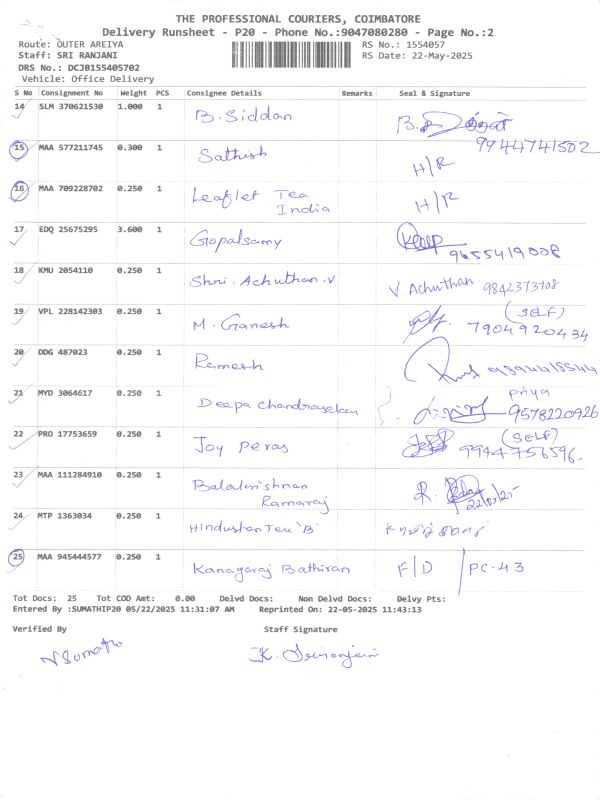 THE PROFESSIONAL COURIERS, COIMBATORE
Delivery Runsheet - P20 - Phone No.:9047080280 - Page No.:2
Route: OUTER AREIYA RS No.: 1554057
Staff: SRI RANJANI RS Date: 22-May-2025
DRS No.: DCJB155405702
Vehicle: Office Delivery
S No Consignment No Weight PCS Consignee Details Remarks Seal & Signature
14 SLM 370621530 1.000 1 B. Siddan B.
9944741502
15 MAA 577211745 0.300 1 Sathish H/R
16 MAA 709228702 0.250 1 Leaflet Tea India H/R
17 EDQ 25675295 3.600 1 Gopalsamy 9655419008
18 KMU 2054110 0.250 1 Shri. Achuthan.V V Achuthan 9842373708
19 VPL 228142303 0.250 1 M. Ganesh (SELF)
7904920434
20 DDG 487023 0.250 1 Ramesh
21 MYD 3064617 0.250 1 Deepa Chandrasekan Priya
9578220926
22 PRO 17753659 0.250 1 Joy Peras (SELF)
9944756596
23 MAA 111284910 0.250 1 Balakrishnan Ramaraj R.
22/05/25
24 MTP 1363034 0.250 1 Hindustan Teu 'B'
25 MAA 945444577 0.250 1 Kanagaraj Bathiran F/D PC-43
Tot Docs: 25 Tot COD Amt: 0.00 Delvd Docs: Non Delvd Docs: Delvy Pts:
Entered By :SUMATHIP20 05/22/2025 11:31:07 AM Reprinted On: 22-05-2025 11:43:13
Verified By Staff Signature